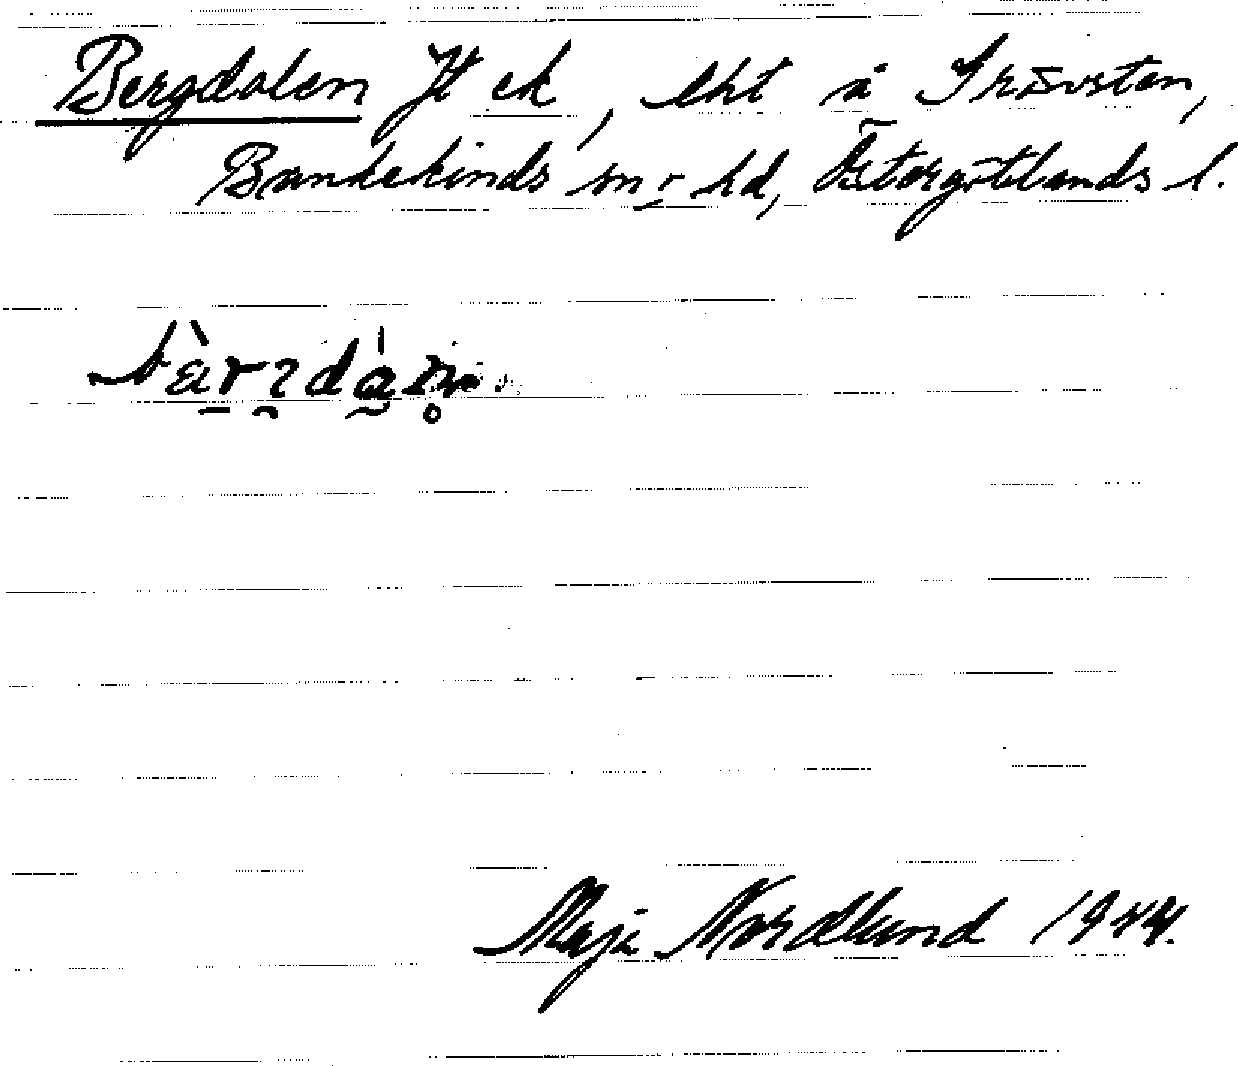 Bergdalen Jt ek, lht å Trövsten,
Bankekinds sn o. hd, Östergötlands l.
Maja Nordlund 1944.